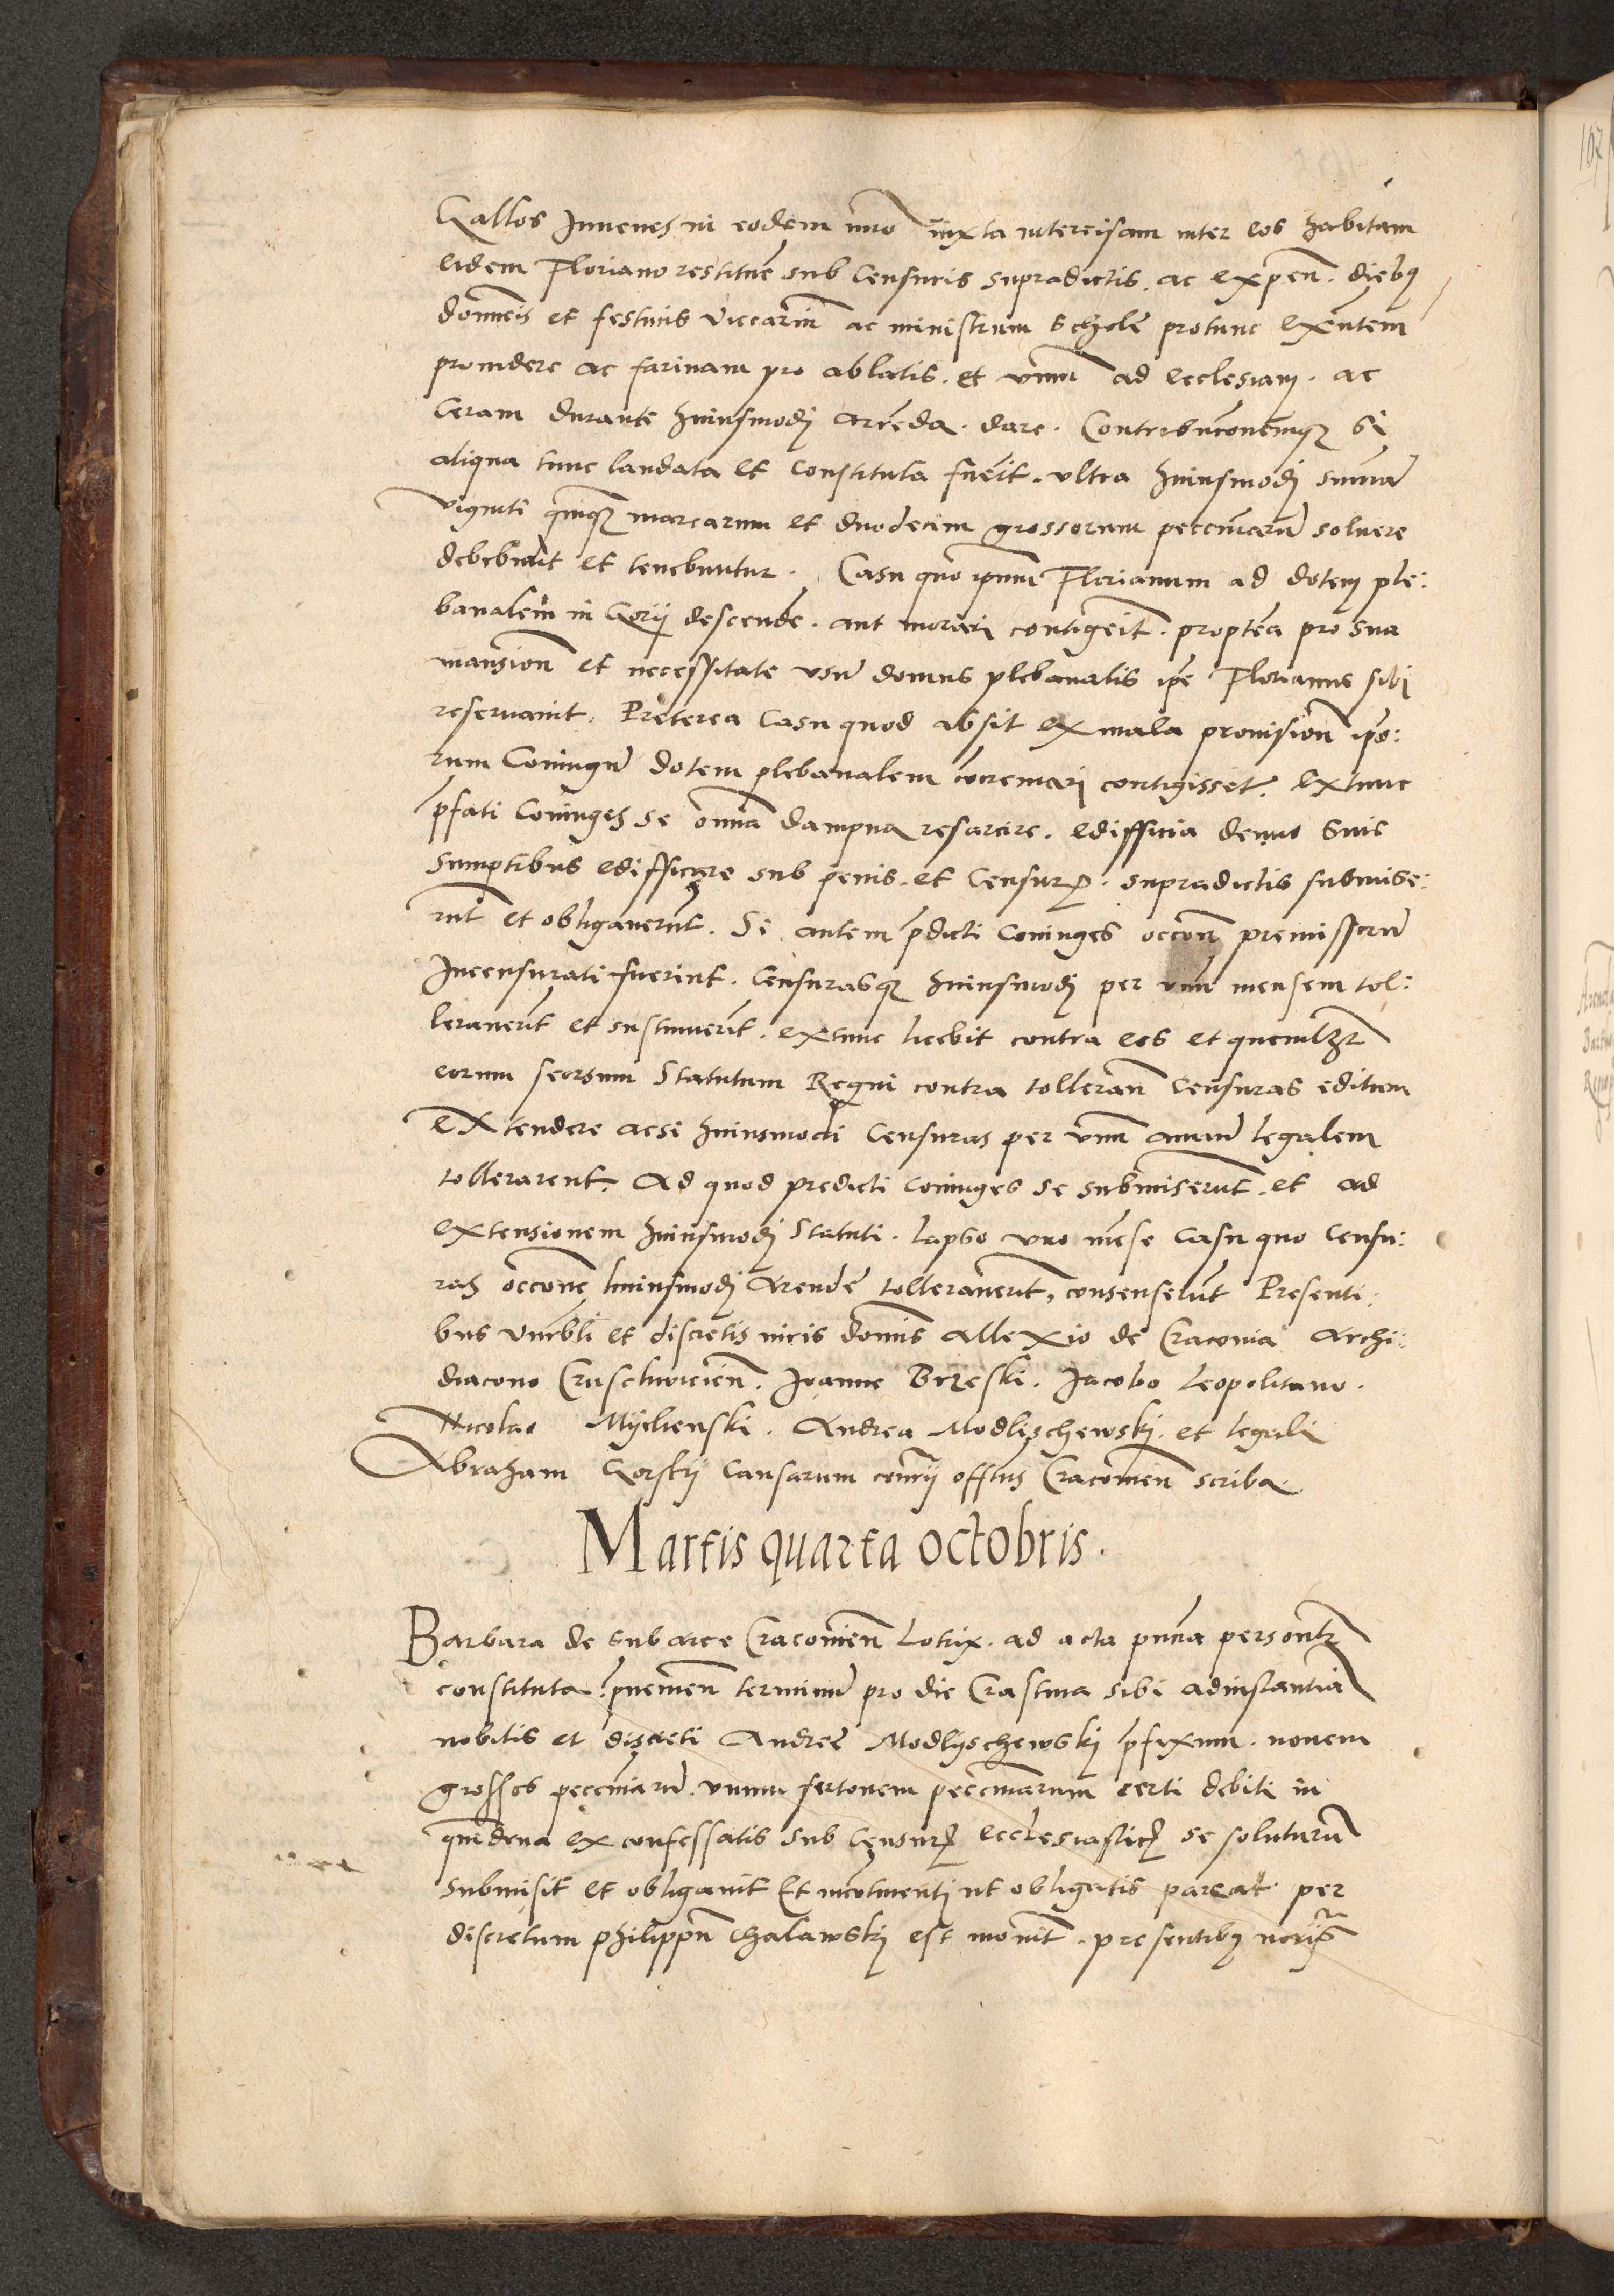 Gallos Juuenes in eodem nuo iuxta intercisam inter eos habitam
eidem Floriano restituē sub Censuris supradictis. ac expeñ. dieb9
domīcis et festiuis Viccariū ac ministrum Schole protunc exñtem
prouidere ac farinam pro ablatis. et vinum ad ecclesiam. ac
Ceram durante huiusmodj arēda. dare. Contribucōnemq3 si
aliqua tunc laudata et constituta fuerit. vltra huiusmodj sūmā
viginti quīq3 marcarum et duodecim grossorum peccuniarū soluere
debebunt et tenebuntur. Casu quo ipsum Florianum ad dotem ple:
banalem in Gorij descendē. aut morari contigerit. proptea pro sua
mansionē et necessitate vsū domus plebanalis ipe Florianus sibi
reseruauit. Preterea Casu quod absit ex mala prouisionē ipo:
rum Coniugū dotem plebanalem cōcremari contigisset. extunc
pfati Coniuges se omīa dampna resarcire. edifficia denuo suis
sumptibus edifficare sub penis. et Censur. supradictis submise:
rūt et obligauerūt. Si autem pdicti Coniuges occōne premissorū
Incensurati fuerint. Censurasq3 huiusmodj per vnū mensem tol:
lerauerīt et sustinuerīt. extunc licebit contra eos et quemlz3
eorum seorsum Statutum Regni contra tollerañ Censuras editum
extendere acsi huiusmodi Censuras per vnū annū legalem
tollerarent. Ad quod predicti Coniuges se submiserūt. et ad
extensionem huiusmodj Statuti. lapso vno mēse Casu quo Censu:
ras occōne huiusmodj Arende tollerauerīt, consenserūt Presenti:
bus venbli et discretis viris domīs Allexio de Cracouia Archi:
diacono Cruschuicieñ. Joanne Brzeski. Jacobo Leopolitano.
Nicolao Myclienski. Andrea Modlischewskj. et legali
Abraham Gorskij Causarum cōrij offtus Cracouieñ scriba.
Martis quarta octobris.
Barbara de sub arce Cracouieñ Lotrix. ad acta pñcia personlr
constituta. puenieñ terminū pro die Crastina sibi adinstantiā
nobilis et discreti Andree Modlyschewskj pfixum. nouem
grosses peccuniarū. vnum fertonem peccuniarum certi debiti in
quīdena ex confessatis sub Censur ecclesiastic se soluturā
submisit et obligauit Et incōtinenti ut obligatis pareat per
discretum philippū Chalawskj est monit. presentib9 norijs